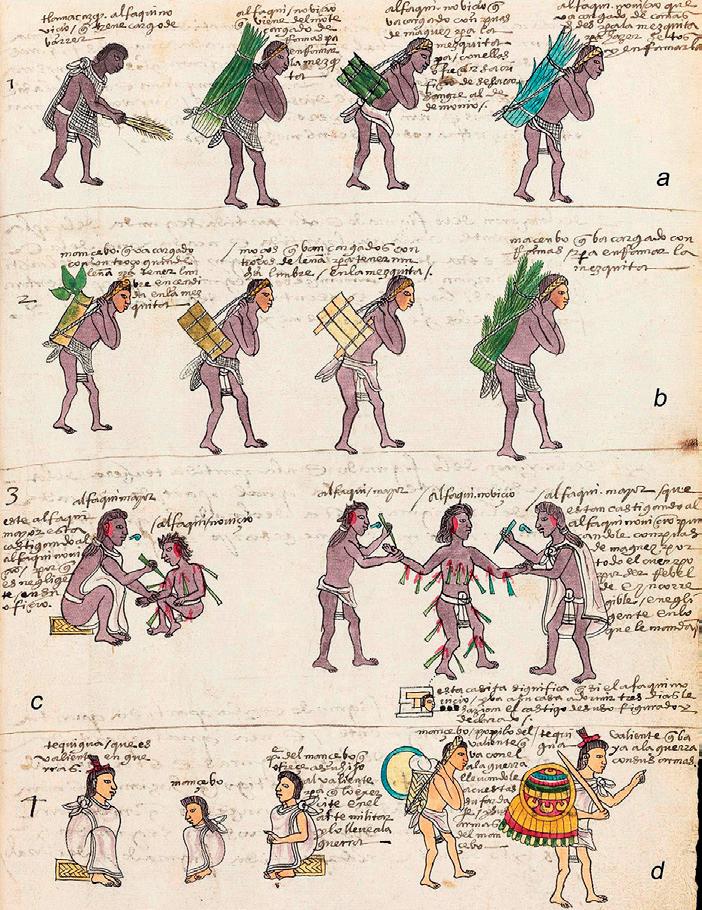 tlamacazq. alfaqui no
vicio / q̃ tiene cargo de
barrer
alfaqui / nobicio q̃
viene del mõte
cargado de
Ramas pa
enRamar
la mezq̃
ta
alfaqui. nobicio q̃
va cargado con puas
de maguez pa la
mezquita
pa / con ellas
ofrezer sacri
ficio de se sacar
sangre al de
demonio /.
alfaqui. novicio que
va cargado de cañas
verdes pa la mezquita
pa hazer setos
y enRamar la
1
a
mancebo. q̃ va cargado
con un troço grande de
leña pa tener lun
bre encendi
da en la mez
quita
/ moços q̃ van cargados con
troços de leña pa tener en
çendida lumbre / en la mezquita /.
mancebo q̃ va cargado con
Ramas / pa enRamar la
mezquita
2
b
3
alfaqui mayor
este alfaqui
mayor esta
castigando al
alfaqui novi
çio / por q̃
es neglige
te en su
ofiçio.
/ alfaqui / noviçio
alfaqui / mayor
/ alfaqui. noviçio
/ alfaqui. mayor / que
estan castigando al
alfaqui noviçio pun
çandole con puas
de maguez por
todo el cuerpo
por ser Rebel
de E yncorre
gible / e negli
gente en lo
que le mandā /
c
esta casita significa q̃ si el alfaqui no
viçio / yva a su casa a dormir tres dias le
hazian el castigo de suso figurado y
declarado /.
4
tequigua / que es
valiente en gue
rras.
mancebo
pe. del mancebo q̃
ofreçe a su hijo
al valiente
pa q̃ lo exer
çite en el
arte militar
y lo lleve a la
guerra
mancebo / popilo del
valiente q̃
va con el
a la guerra
llevandole
a cuestas
su farda
je / y sus
armas
del man
cebo
tequi
gua
valiente q̃ va
ya a la guerra
con sus armas
d